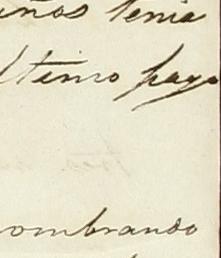 años tenia
ltimo pago
ombrando